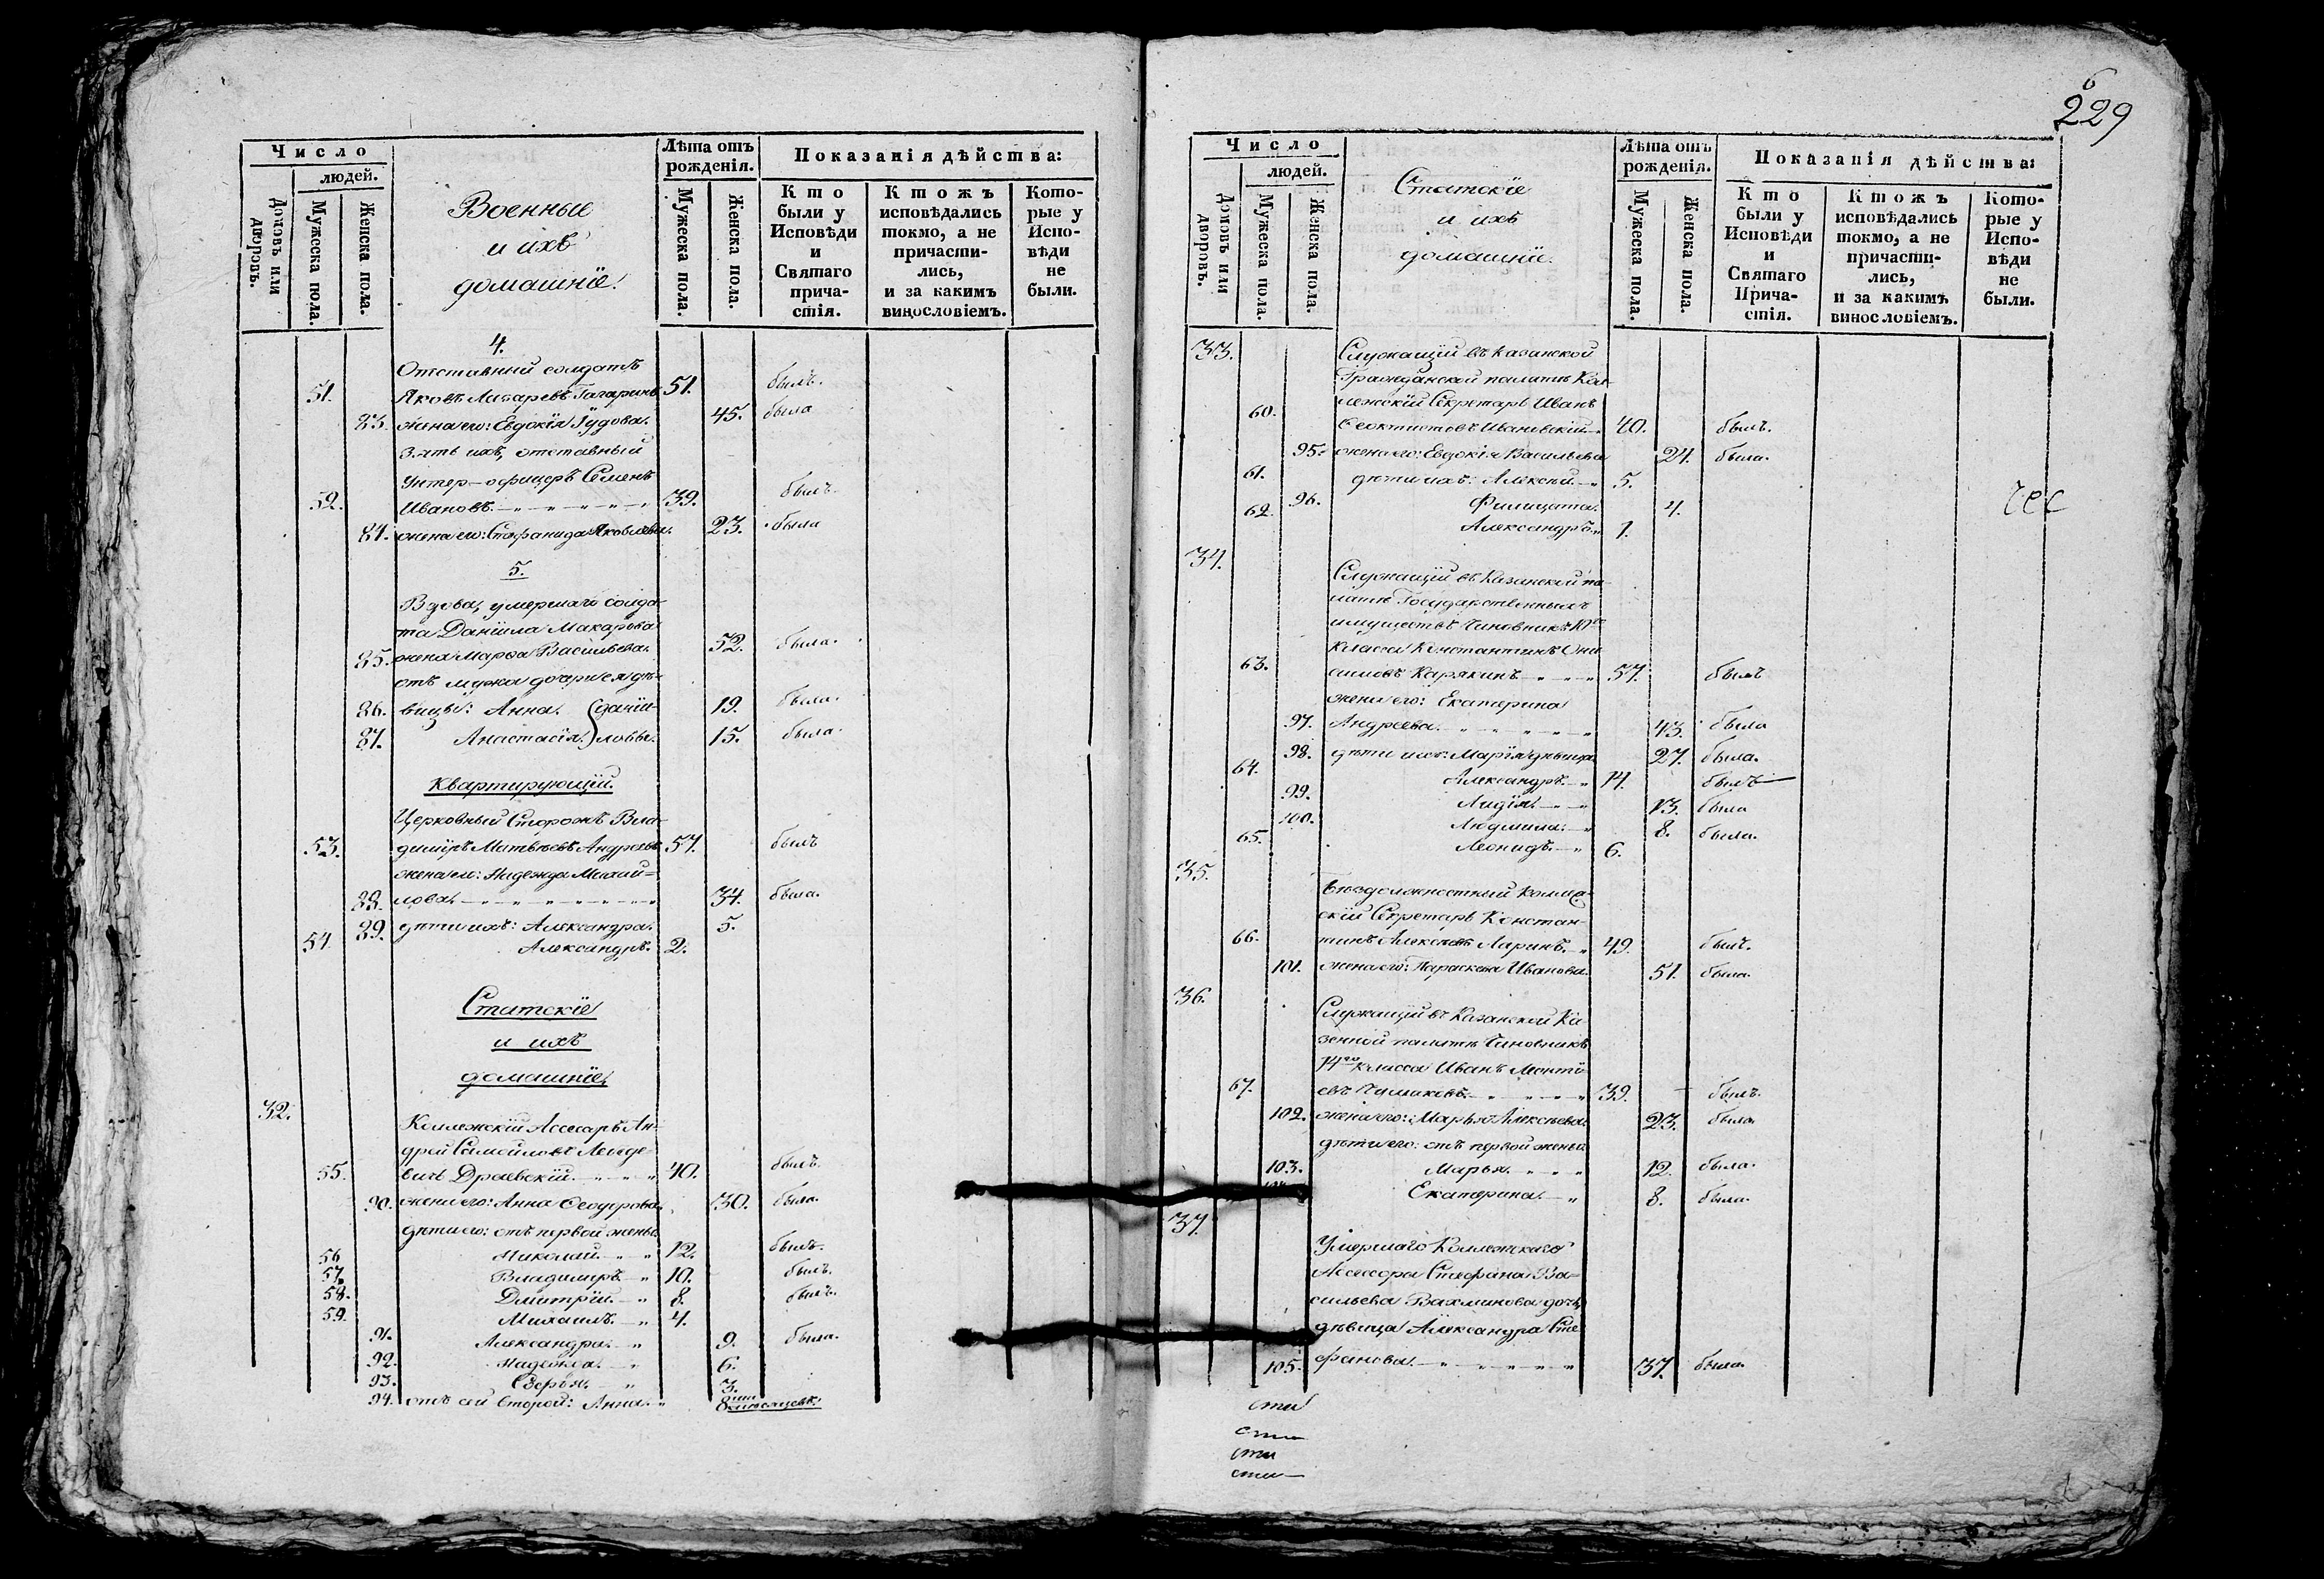 Число
людей.
Домовъ или дворовъ.
Мужеска пола.
Женска пола.
Военные
и ихъ
домашніе.
Лѣта отъ рожденія.
Мужеска пола.
Женска пола.
Показанія дѣйства:
Кто были у Исповѣди и Святаго причастія.
Ктожъ исповѣдались токмо, а не причастились, и за какимъ винословіемъ.
Которые у Исповѣди не были.
4.
Отставный солдатъ
51. Яковъ Лазаревъ Гагаринъ 51. былъ.
83. жена его: Евдокія 45. была
Зять ихъ, отставный
унтер-офицеръ Семенъ
52. Ивановъ. 39. былъ.
84. жена его: Стефанида Яковлева. 23. была
5.
Вдова, умершаго солда-
та Даніила Макарова
85. жена Марѳа Васильева. 52. была.
отъ мужа дочери ея дѣ-
86. вицы: Анна. 19. была.
87. Анастасія. } Даніи-ловы. 15. была.
Квартирующій.
Церковный Сторожъ Вла-
53. диміръ Матвѣевъ Андреевъ 57. былъ
жена его: Надежда Михай=
88. лова. 34. была.
89. дѣти ихъ: Александра. 5.
54 Александръ. 2.
Статскіе
и ихъ
домашніе,
32.
Коллежскій Ассесаръ Ан-
дрей Самойловъ
55. Драевскій. 40. былъ.
90. жена его: Анна Ѳеодорова. 30. была.
дѣти его: отъ первой жены.
56 Николай. 12. былъ.
57. Владимиръ. 10. былъ.
58. Дмитрій. 8. былъ.
59. Михаилъ. 4.
91. Александра. 9. была.
92. Надежда. 6.
93. 3.
94. отъ сей второй: Анна. 8 мѣсяцевъ.
6
229
Число
людей.
Домовъ или дворовъ.
Мужеска пола.
Женска пола.
Статскіе
и ихъ
домашніе.
Лѣта отъ рожденія.
Мужеска пола.
Женска пола.
Показанія дѣйства:
Кто были у Исповѣди и Святаго Причастія.
Ктожъ исповѣдались токмо, а не причастились, и за какимъ винословіемъ.
Которые у Исповѣди не были.
33.
Служащій въ Казанской
Гражданской палатѣ Кол-
лежскій Секретарь Иванъ
60. Ѳеоктистовъ Ивановскій. 40. былъ.
95. жена его: Евдокія Васильева 24. была.
61. дѣти ихъ: Алексѣй. 5.
96. Филицата. 4.
62. Александръ. 1.
34.
Служащій въ Казанской па-
латѣ Государственныхъ
имуществъ Чиновникъ 10го
Класса Константинъ Они
63. симовъ Карякинъ 57. былъ
жена его: Екатерина
97. Андреева. 43. была
98. дѣти ихъ: Марія дѣвица. 27. была.
64. Александръ. 14. былъ
99. Лидія. 13. была
100. Людмила. 8. была.
65. Леонидъ. 6.
35.
Внѣдолжностный Колле
скій Секретарь Констан-
66. тинъ Алексѣевъ Ларинъ. 49. былъ.
101. жена его: Параскева Иванова. 51. была.
36.
Служащій въ Казанской Ка
зенной палатѣ Чиновникъ
14го класса Иванъ
67. 39. былъ.
102. жена его: Марья Алексѣева. 23. была.
дѣти его: отъ первой жены.
103. Марья. 12. была.
Екатерина. 8. была.
37.
Умершаго Коллежскаго
Ассесора Стефана Ва=
сильева дочь,
дѣвица Александра Сте
105. фанова. 37. была.
сти
сти
сти
сти